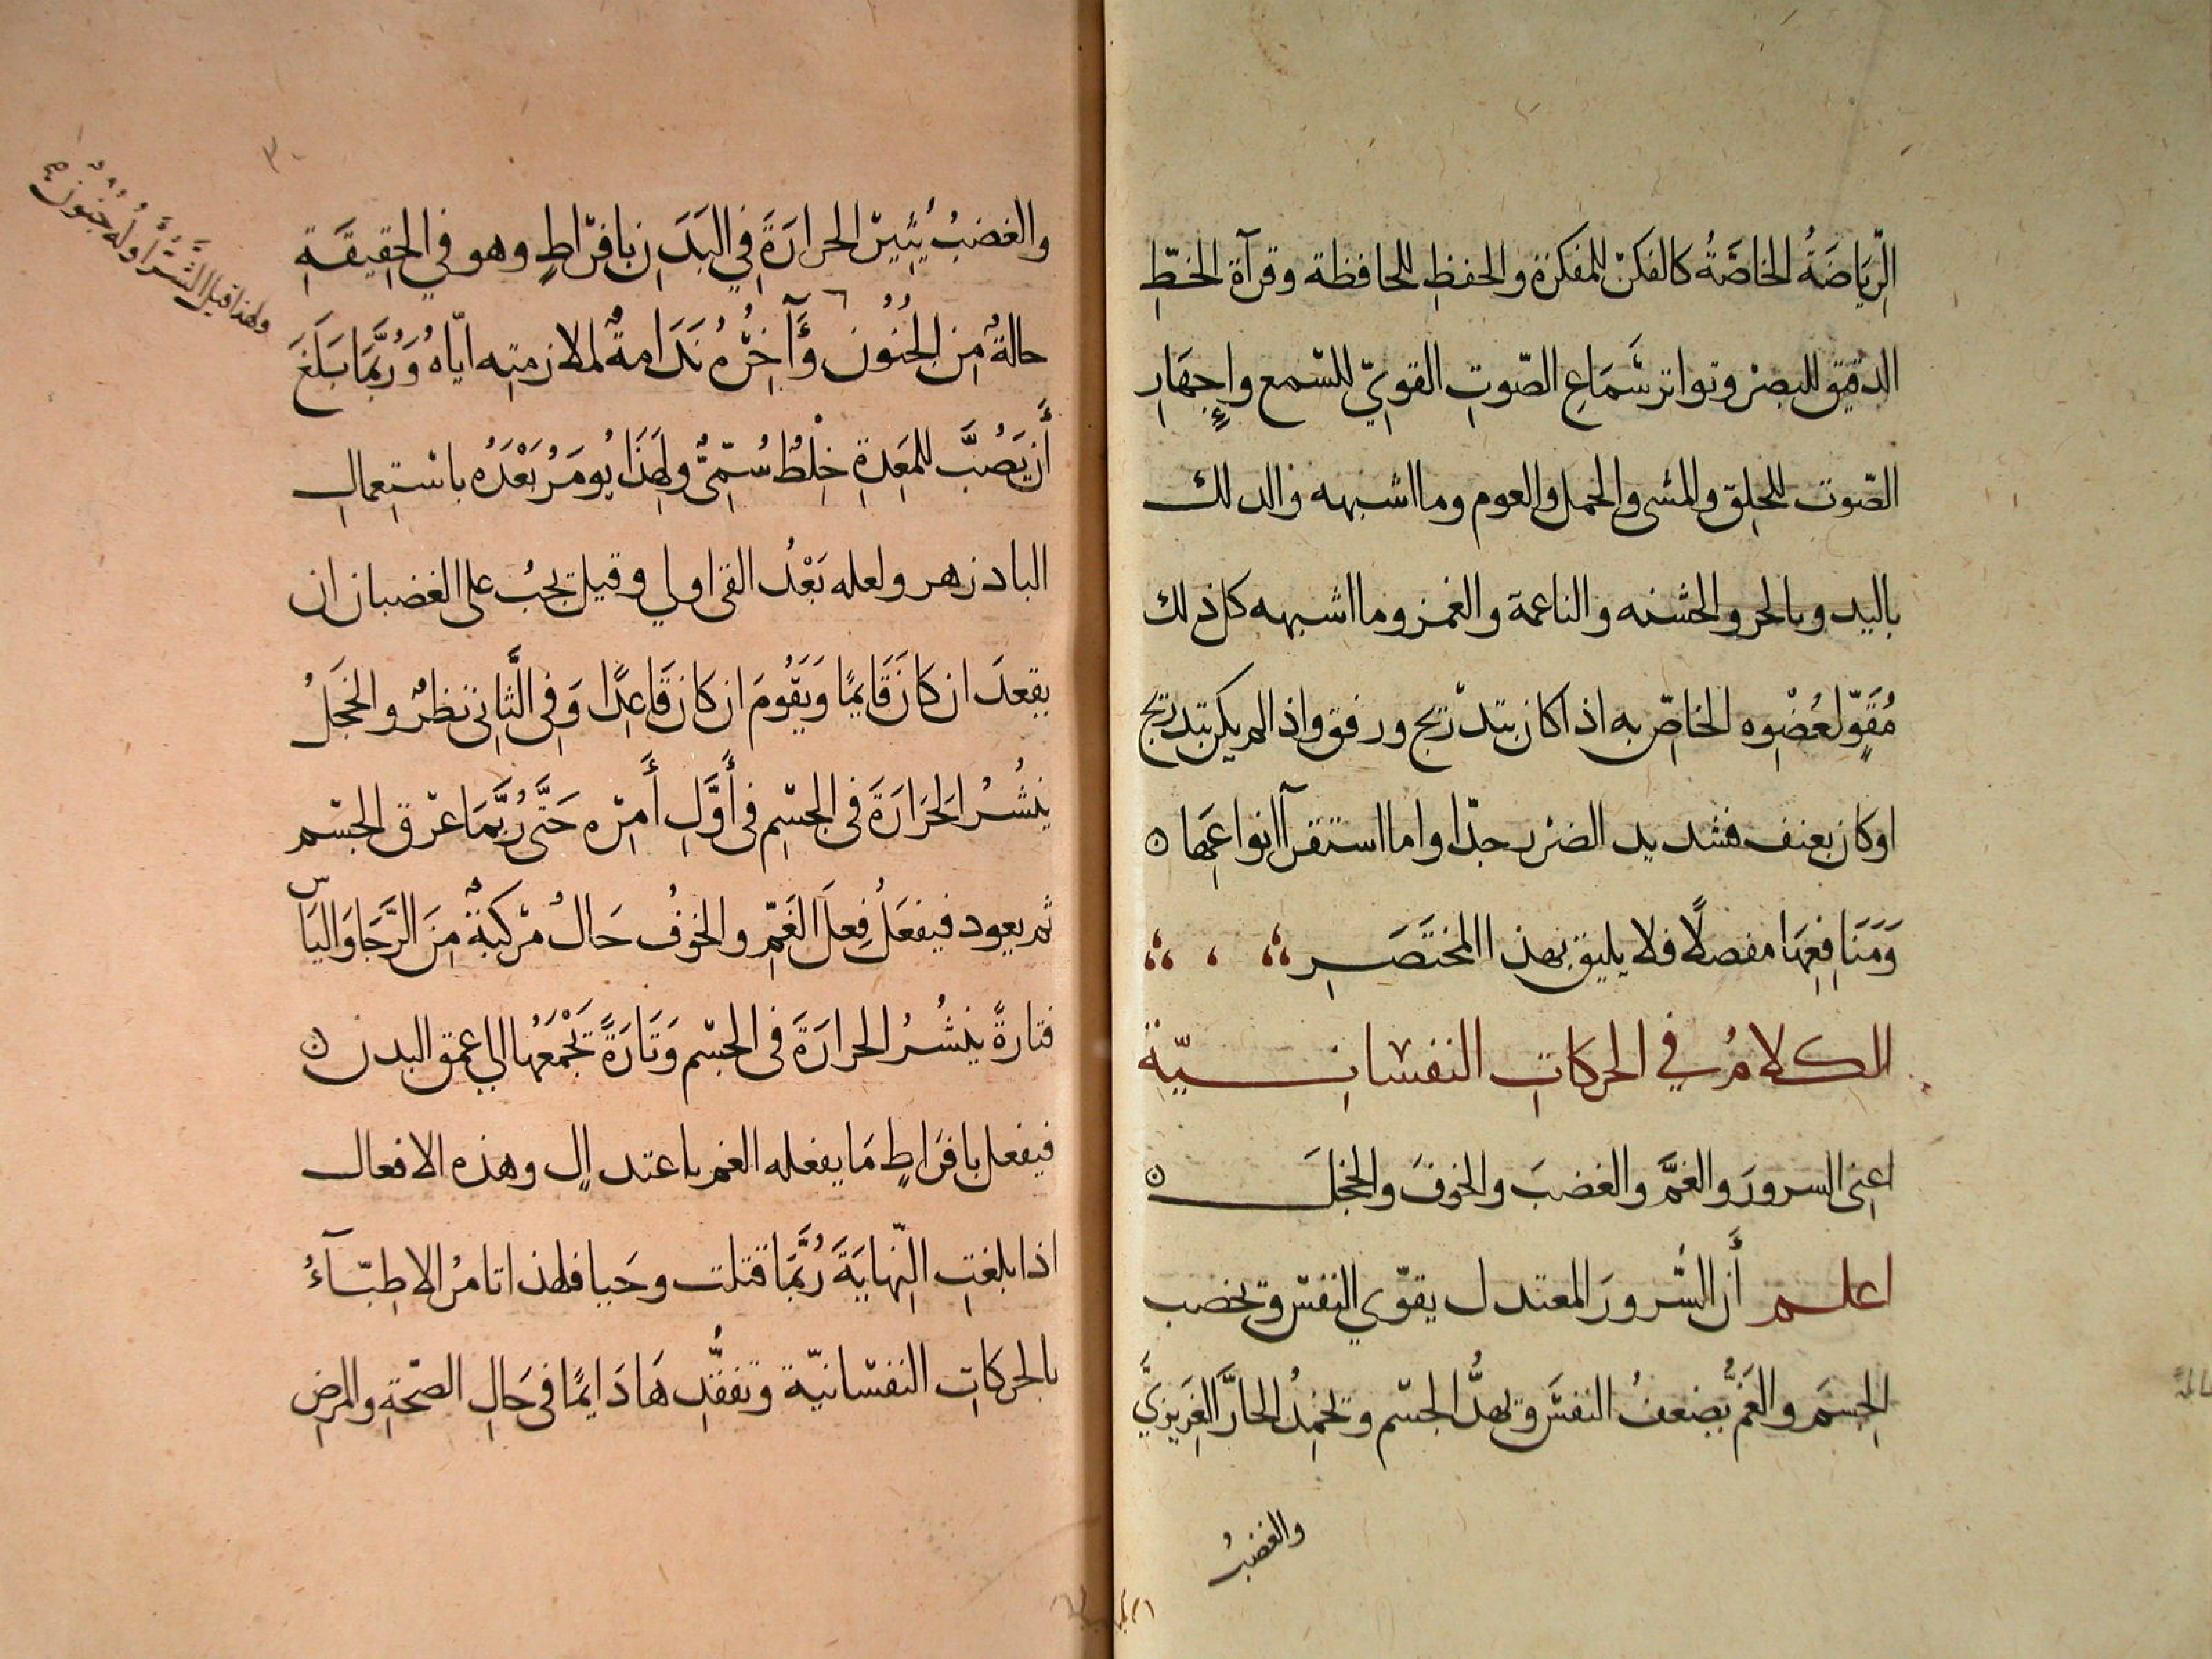 الرِّيَاضَةُ الخَاصَّةُ كالفكر للمفكرة والحفظِ للحافظة وقرآة الخطِّ
الدقيق للبصر وتواتر سَمَاعِ الصّوتِ القويّ للسّمع وإِجهَارِ
الصّوت للحلق والمشى والحمل والعوم وما اشبهه والدلك
باليد وبالحر والخشنه والناعمة والغمز وما اشبهه كل ذلك
مُقَوٍّ لعُضْوِه الخاصِّ به اذا كان بتدريج ورفق واذا لم يكن بتدريج
او كان بعنف فشديد الضرر جدّا واما استقرآ انواعِهَا
وَمَنَافِعِهَا مفصلًا فلا يليق بهذا المختَصَرِ
الكلامُ في الحركاتِ النفسانيّةِ
اعنِى السرورَ والغمَّ والغضبَ والخوفَ والخجلَ
اعلم أن السُّرورَ المعتدل يقوّي النفسَ وتخصب
الجِسمَ والغمُّ يُضعفُ النفسَ ويهدُّ الجسْم ويخمِدُ الحارَّ الغَرِيزِيَّ
والغضبُ
والغضبُ يُثِيرُ الحرارَةَ فِي البَدَنِ بافرَاطٍ وهو في الحقِيقَةِ
حالةٌ مِن الجُنُون وَآخِرُهُ نَدَامةٌ لملازمتِه ايّاهُ وَرُبَّمَا بَلَغَ
أَن يَصُبَّ للمَعِدةِ خِلْطٌ سُمِّىٌّ ولِهَذَا يُومَرُ بَعْدَهُ باسْتِعمالِ
البادزهر ولعله بَعْدُ القئ اولي وقيل يجبُ على الغضبان ان
يقعدَ ان كانَ قَايمًا وَيَقُومَ ان كان قَاعِدًا وَفِى الثَّانِى نظرٌ والخجَلُ
ينشُرُ الحَرَارَةَ فى الجسْمِ فى أَوَّلِ أَمرِه حَتَّى رُبَّمَا عرق الجسْم
ثم يعود فيفعَلُ فِعلَ الغَمِّ والخوفُ حَالٌ مركبةٌ مِنَ الرَّجَا وَاليَأس
فتارةً ينشُرُ الحرارَةَ فى الجسْم وَتَارَةً يَجْمَعُهَا الى عمق البدن
فيفعل بافرَاطٍ مَا يفعله الغم باعتدالٍ وهذه الافعال
اذا بلغتِ النِّهايَةَ رُبَّمَا قتلت وحَيا فلهذا تامرُ الاطِبّآءُ
بالحركاتِ النفسَانيّة وتفقُّدِهَا دَايمًا فى حَالِ الصّحةِ والمرَضِ
ولهذا قيل الشَّرُّ أَولُهُ جُنُونٌ
٣٠